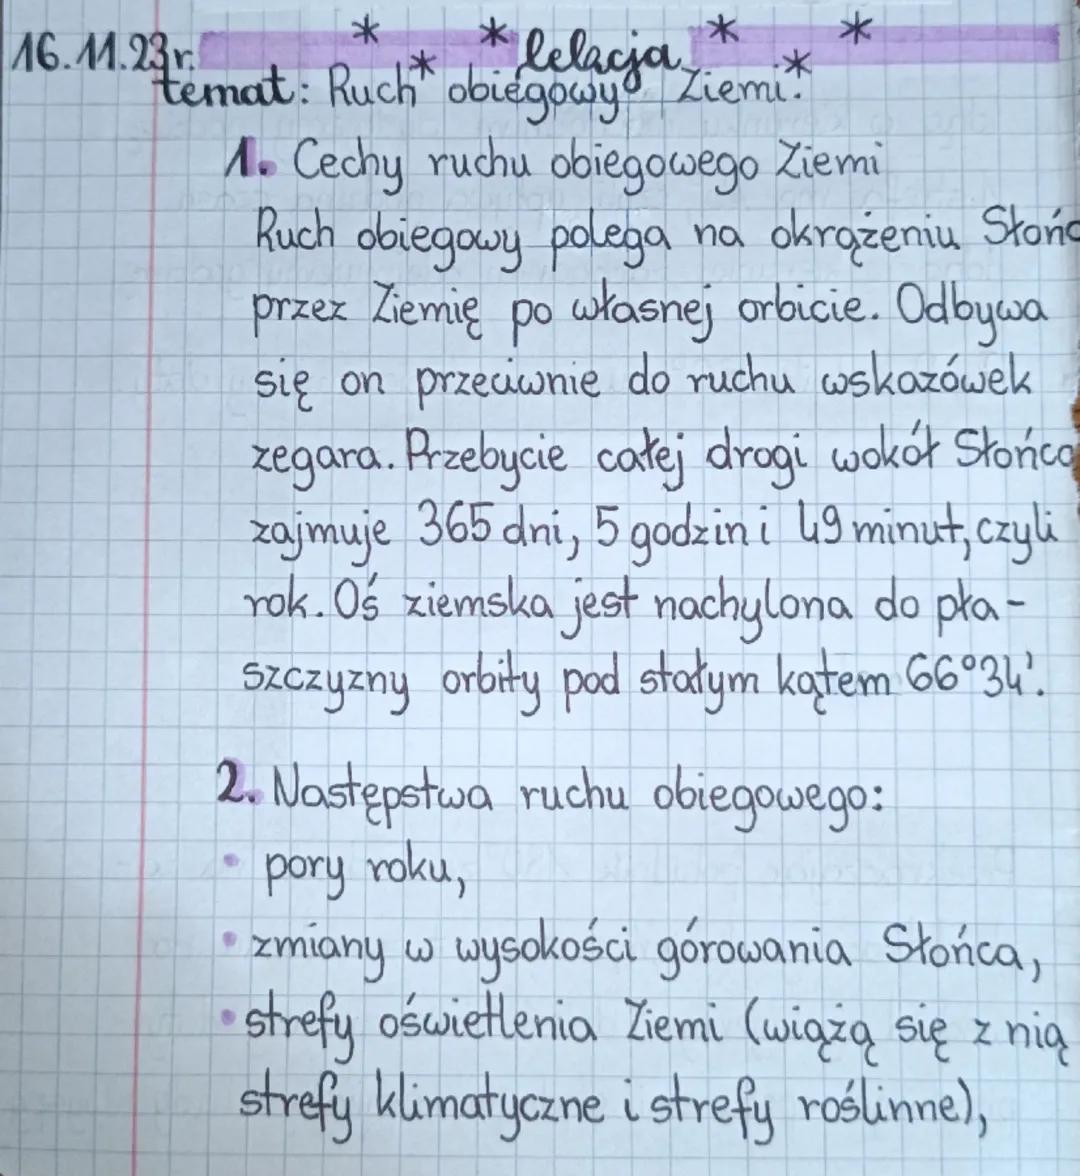 16.11.23r. * * * lelacja * * *
temat: Ruch obiegowy Ziemi.
1. Cechy ruchu obiegowego Ziemi
Ruch obiegowy polega na okrążeniu Słońc
przez Ziemię po własnej orbicie. Odbywa
się on przeciwnie do ruchu wskazówek
zegara. Przebycie całej drogi wokół Słońca
zajmuje 365 dni, 5 godzin i 49 minut, czyli
rok. Oś ziemska jest nachylona do pła-
szczyzny orbity pod stałym kątem 66°34'.
2. Następstwa ruchu obiegowego:
• pory roku,
• zmiany w wysokości górowania Słońca,
• strefy oświetlenia Ziemi (wiążą się z nią
strefy klimatyczne i strefy roślinne),